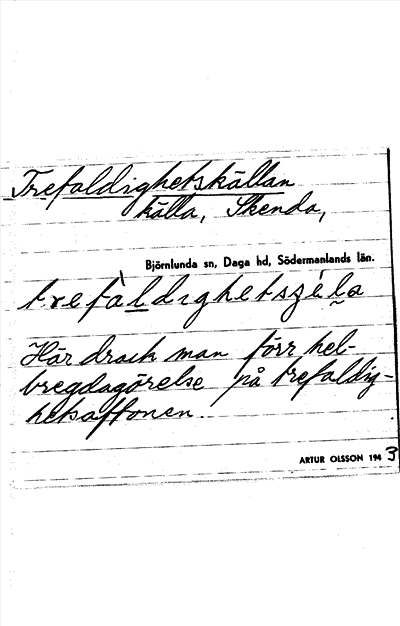 Trefaldighetskällan
källa, Skenda,
Björnlunda sn, Daga hd, Södermanlands län.
trefàldighetszèla
Här drack man förr hel-
bregdagörelse på trefaldig-
hetsaftonen.
ARTUR OLSSON 1943